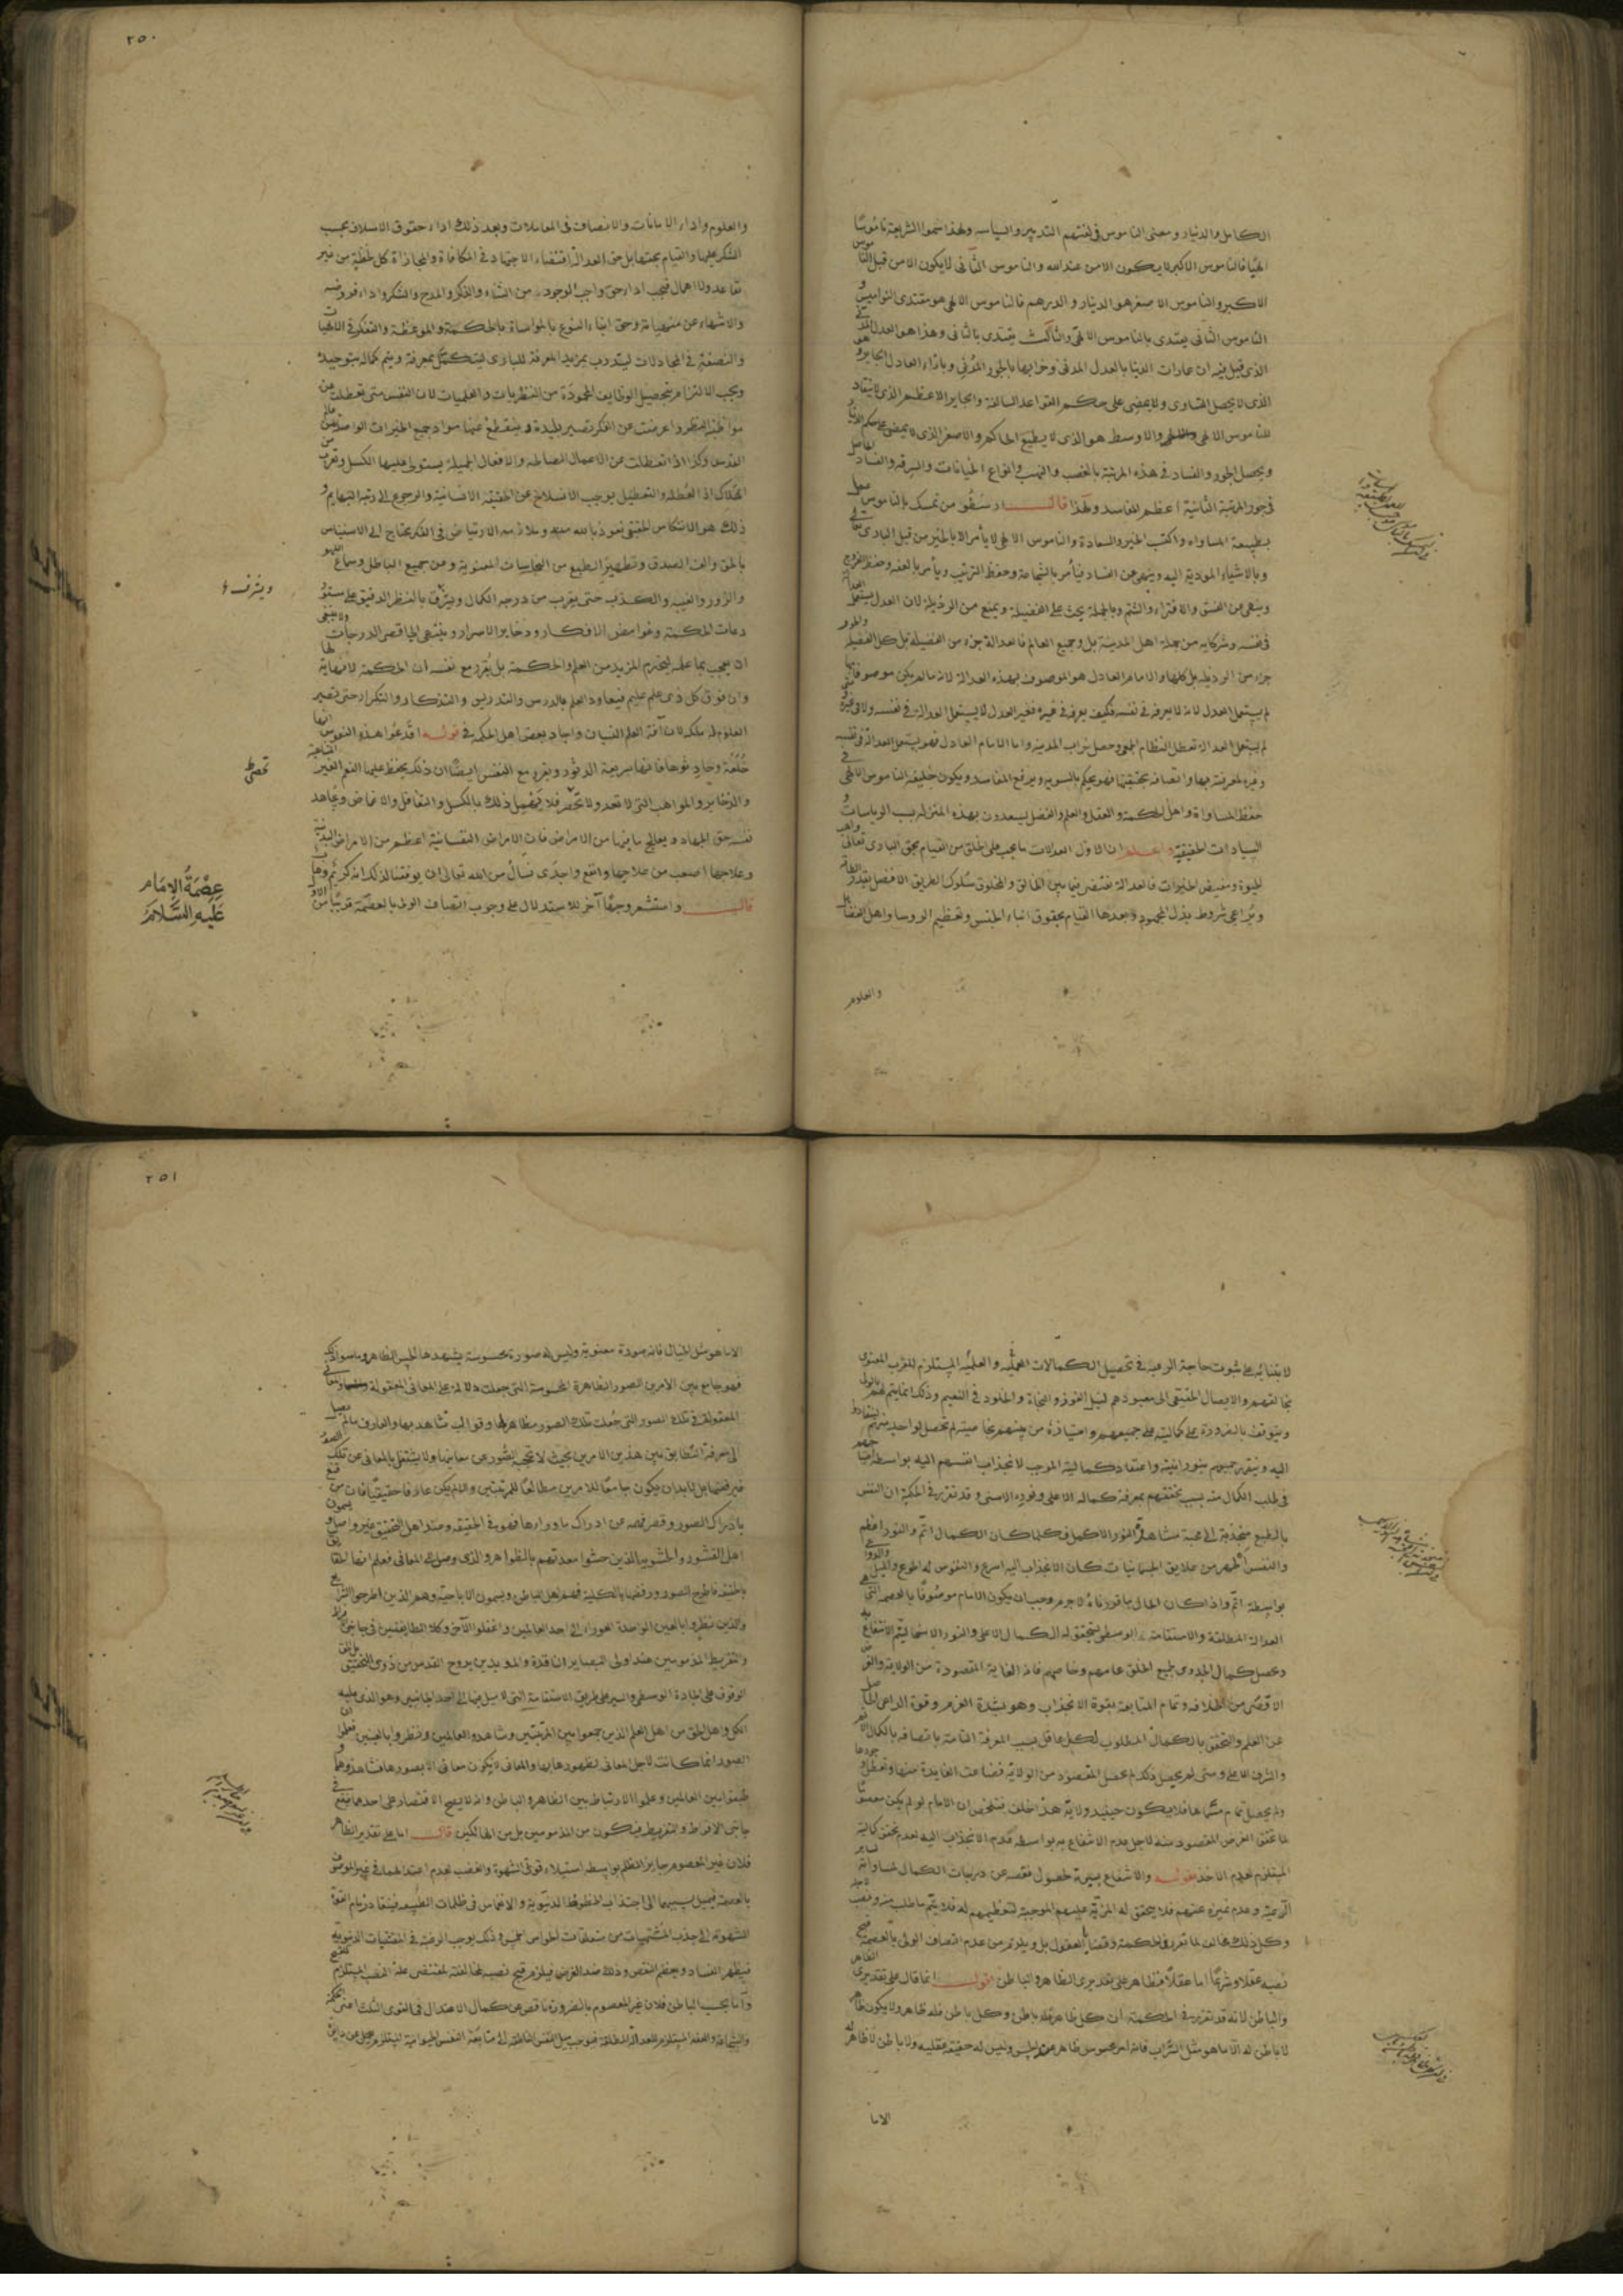 ٢٥٠
الكامل والدينار ومعنى الناموس فى لغتهم التدبير والسياسه ولهذا سموا الشريعة ناموسًا
الهيا فالناموس الاكبر لا يكون الا من عند الله والناموس الثانى لا يكون الا من قبل الناموس
الاكبر والناموس الاصغر هو الدينار والدرهم فالناموس الالهى هو مقتدى النواميس و
الناموس الثانى يقتدى بالناموس الالهى والثالث يقتدى بالثانى وهذا هو العدل
الذى قيل فيه ان عمارات الدنيا بالعدل المدنى وخرابها بالجور المدنى وبازاء العادل الجاير وهو
الذى لا يحصل التساوى ولا يمضى على حكم القواعد السالفة والجاير الاعظم الذى لا ينقاد
للناموس الالهى والاوسط هو الذى لا يطيع الحاكم والاصغر الذى لا يمضى على حكم الدينار
ويحصل الجور والفساد فى هذه المرتبة بالغصب والنهب وانواع الخيانات والسرقه والفساد الحاصل
فى جور المرتبة الثانية اعظم المفاسد ولهذا قال ارسطو من تمسك بالناموس عمل
بطبيعة المساواه واكتسب الخير والسعادة والناموس الالهى لا يأمر الا بالخير من قبل البارى تعالى
وبالاشياء المودية اليه وينهى عن الفساد فيأمر بالشجاعة وحفظ الترتيب ويأمر بالعفه وحفظ الفروج
وينهى عن الفسق والافتراء والشتم وبالجملة يحث على الفضيلة ويمنع من الرذيلة لان العدل يستعمل العدالة
فى نفسه وشركايه من جملة اهل المدينة بل وجميع العالم فالعدالة جزء من الفضيله بل كل الفضيله والجور
جزء من الرذيله بل كلها والامام العادل هو الموصوف بهذه العدالة لانه ما لم يكن موصوفا بها
لم يستعمل العدل لانه لا يعرفه فى نفسه فكيف يعرفه فى غيره فغير العدل لا يستعمل العدالة فى نفسه ولا فى غيره ومتى
لم يستعمل العدالة تعطل النظام الجمعى وحصل خراب المدينة واما الامام العادل فهو يستعمل العدالة فى نفسه
وغيره لمعرفته بها واتصافه بحقيقتها فهو يحكم بالسويه ويرفع المفاسد ويكون خليفه الناموس الالهى فى
حفظ المساواة واهل الحكمة والعقل والعلم والفضل يسعدون بهذه المنزله بسبب الرياسات و
السيادات الحقيقية واعلم ان الاول العدالات ما يجب على الخلق من القيام بحق البارى تعالى واهب
الحيوة ومفيض الخيرات فالعدالة تقتضى فيما بين الخالق والمخلوق سلوك الطريق الافضل بقدر الطاقة
ويراعى شروط بذل المجهود وبعدها القيام بحقوق ابناء الجنس وتعظيم الروسا واهل الفضايل
والعلوم
والعلوم واداء الامانات والانصاف فى المعاملات وبعد ذلك اداء حقوق الاسلاف بحسب
الشكر عليها والقيام بحقها بل حق العدالة اقتضاء الاجتهاد فى المكافاة والمجازاة كل لحظة من غير
تقاعد ولا اهمال فيجب اداء حق واجب الوجود من الثناء والذكر والمدح والشكر واداء فروضه
والانتهاء عن منهياته وحق ابناء النوع بالمواساة بالحكمة والموعظة والتفكر فى الالهيات
والنصفة فى المحادلات ليتدرب بمزيد المعرفة للبارى ليتكمل بمعرفة ويتم كماله بتوحيده
ويجب الالتزام بتحصيل الوظايف المحمودة من النظريات والعمليات لان النفس متى تعطلت عن
مواظبة النظر واعرضت عن الفكر تصير بليدة وينقطع عنها مواد جميع الخيرات الواصلة من عالم
القدس وكذا اذا تعطلت عن الاعمال الصالحه والافعال الجميلة يستولى عليها الكسل وتقرب من
الهلاك اذ العطلة والتعطيل يوجب الانسلاخ عن الحقيقه الانسانية والرجوع الى رتبة البهايم و
ذلك هو الانتكاس الحقيقى نعوذ بالله منه وملازمه الارتياض فى الفكر يحتاج الى الاستيناس
بالحق والف الصدق وتطهير الطبع من النجاسات المعنوية وعن جميع الباطل وسماع اللهو
والزور والغيبه والكذب حتى يقرب من درجه الكمال ويشرق بالنظر الدقيق على مستو
دعات الحكمة وغوامض الافكار وذخاير الاسرار وينتهى الى اقصى الدرجات ولا ينبغى
ان يعجب بما علم ليحرم المزيد من العلم والحكمة بل يقرر مع نفسه ان الحكمة لا نهاية لها
وان فوق كل ذى علم عليم فيعاود العلم بالدرس والتدريس والتذكار والتكرار حتى تصير
العلوم له ملكة لان آفة العلم النسيان واجاد بعض اهل الحكمة فى قوله اقدعوا هذه النفوس فانها
طلعة وحادثوها فانها سريعة الدثور ويقرر مع النفس ايضًا ان ذلك يحفظ عليها النعم الغير المتناهية
والذخاير والمواهب التى لا تعد ولا تحصر فلا يهمل ذلك بالكسل والتغافل والاغماض ويجاهد
نفسه حق الجهاد ويعالج ما فيها من الامراض فان الامراض النفسانية اعظم من الامراض البدنية
وعلاجها اصعب من علاجها وانفع واجدى نسأل من الله تعالى ان يوفقنا لذلك انه كريم وهاب
قال واستشعر وجهًا آخر للاستدلال على وجوب اتصاف الولى بالعصمة قريبًا من الاول
ويشرف
تحصى
عصمة الامام
عليه السلام
٢٥١
لابتنائه على ثبوت حاجة الرعيه فى تحصيل الكمالات العملية والعلميه المستلزم للقرب المعنوى
بخالقهم والايصال الحقيقى الى معبودهم لنيل الفوز والنجاة والخلود فى النعيم وذلك انما يتم لهم بالولى
ويتوقف بالضرورة على كماليته على جميعهم وامتيازه من بينهم بخاصيته لم تحصل لواحد منهم لينقادوا
اليه وينقهر جميعهم بنورانيته واعتقاد كماليته الموجب لانجذاب انفسهم اليه بواسطة
فى طلب الكمال منه بسبب تحققهم بمعرفة كماله الاعلى ونوره الاسنى وقد تقرر فى الحكمة ان النفس
بالطبع منجذبة الى محبة مشاهدة النور الاكمل فكلما كان الكمال اتم والنور اعظم
والنفس اطهر من علايق الجسمانيات كان الانجذاب اليه اسرع والنفوس له اطوع والميل
بواسطة اتم واذا كان الحال ما قررناه لاجرم وجب ان يكون الامام موصوفًا بالعصمه التى هى
العدالة المطلقة والاستقامة الوسطى ليتحقق له الكمال الاعلى والنور الاسنى ليتم الانتفاع به
ويحصل كمال الجدوى لجميع الخلق عامهم وخاصهم فانه الغاية المقصودة من الولاية والغرض
الاقصى من الخلافه وتمام المتابعة بقوة الانجذاب وهو بشدة العزم وقوة الداعى الحاصل
عن العلم والتحقق بالكمال المطلوب لكل عاقل بسبب المعرفة التامة باتصافه بالكمال الاتم
والشرف الاعلى ومتى لم يحصل ذلك لم يحصل المقصود من الولاية فضاعت الفايدة منها وتعطل وجودها
ولم يحصل تمام مسماها فلا يكون حينيد ولاية هذا خلف فتلخص ان الامام لو لم يكن معصومًا
لما تحقق الغرض المقصود منه لاجل عدم الانتفاع به بواسطة عدم الانجذاب اليه لعدم تحقق كماليته
المستلزم لعدم الاخذ بقوله والانتفاع بسيرته لحصول نقصه عن درجات الكمال لمساواته لساير
الرعية وعدم تميزه عنهم فلا يتحقق له المزية عليهم الموجبة لتعظيمهم له فلا يتم ما طلب منه ونصب لاجله
وكل ذلك مخالف لما تقرر فى الحكمة وقضايا العقول بل ويلزم من عدم اتصاف الولى بالعصمة قبح
نصبه عقلا وشرعًا اما عقلا فظاهر على تقديرى الظاهر والباطن اقول انما قال على تقديرى الظاهر
والباطن لانه قد تقرر فى الحكمة ان كل ظاهر فله باطن وكل باطن فله ظاهر ولا يكون ظاهر
لا باطن له الا ما هو مثل السراب فانه امر محسوس ظاهر عند الحس وليس له حقيقة عقليه ولا باطن لا ظاهر له
الا ما
الا ما هو مثل الخيال فانه صورة معنوية وليس له صورة محسوسة يشهدها الحس الظاهر وما سوا ذلك
فهو جامع بين الامرين الصور الظاهرة المحسوسة التى جعلت دلالة على المعانى المعقولة والمعانى
المعقولة فى تلك الصور التى جعلت تلك الصور مظاهر لها وقوالب تشاهد بها والعارف ما لم يصل
الى معرفة التطابق بين هذين الامرين بحيث لا تحجبه الصور عن معانيها ولا يشتغل بالمعانى عن تلك الصور
فيرفضها بل لابد ان يكون جامعًا للامرين مطالعًا للمرتبتين والا لم يكن عارفا حقيقيًا فان من قنع
بادراك الصور وقصر فهمه عن ادراك ما وراءها فهو فى الحقيقه وعند اهل التحقيق غير واصل ويسمون
اهل القشور والحشويه الذين حشوا معدتهم بالظواهر والذى وصل الى المعانى فعلم انها الحقايق
باطنة فاطرح الصور ورفضها بالكلية فهم اهل الباطن ويسمون الاباحية وهم الذين اطرحوا الشرايع
والذين نظروا بالعين الواحدة العوراء الى احد العالمين واغفلوا الآخر وكلا الطايفتين فى جانبى الافراط
والتفريط المذمومين عند اولى البصاير النافذة والمويدين بروح القدس من ذوى التحقيق بل الحق
الوقوف على الجادة الوسطى والسير على طريق الاستقامة التى لا ميل فيها الى احد الجانبين وهو الذى عليه
الكل واهل الحق من اهل العلم الذين جمعوا بين المرتبتين وشاهدوا العالمين ونظروا بالعينين فعلموا ان
الصور انما كانت لاجل المعانى لظهورها بها والمعانى لا يكون معانى الا بصورها فشاهدوهما و
طبقوا بين العالمين وعلموا الارتباط بين الظاهر والباطن وانه لا يصح الاقتصار على احدهما فيقع فى
جانبى الافراط والتفريط فيكون من المذمومين بل من الهالكين قال اما على تقدير الظاهر
فلان غير المعصوم جايز الظلم بواسطة استيلاء قوتى الشهوة والغضب لعدم اعتدالهما فى غير الموصوف
بالعصمة فيميل بسببهما الى اجتذاب الحظوظ الدنيوية والانغماس فى ظلمات الطبيعه فينقاد زمام القوة
الشهوية الى جذب المشتهيات من متعلقات الحواس الخمس وذلك يوجب الرغبة فى المقتنيات الدنيوية
فيظهر الفساد ويعظم النقص وذلك ضد الغرض فيلزم قبح نصبه لمخالفته لمقتضى علة النصب المستلزم للقبح
واما بحسب الباطن فلان غير المعصوم بالضرورة ناقص عن كمال الاعتدال فى القوى الثلث اعنى الحكمة
والشجاعة والعفة المستلزم للعدالة المطلقة فيوجب ميل النفس الناطقة الى متابعة النفس الحيوانية المستلزم